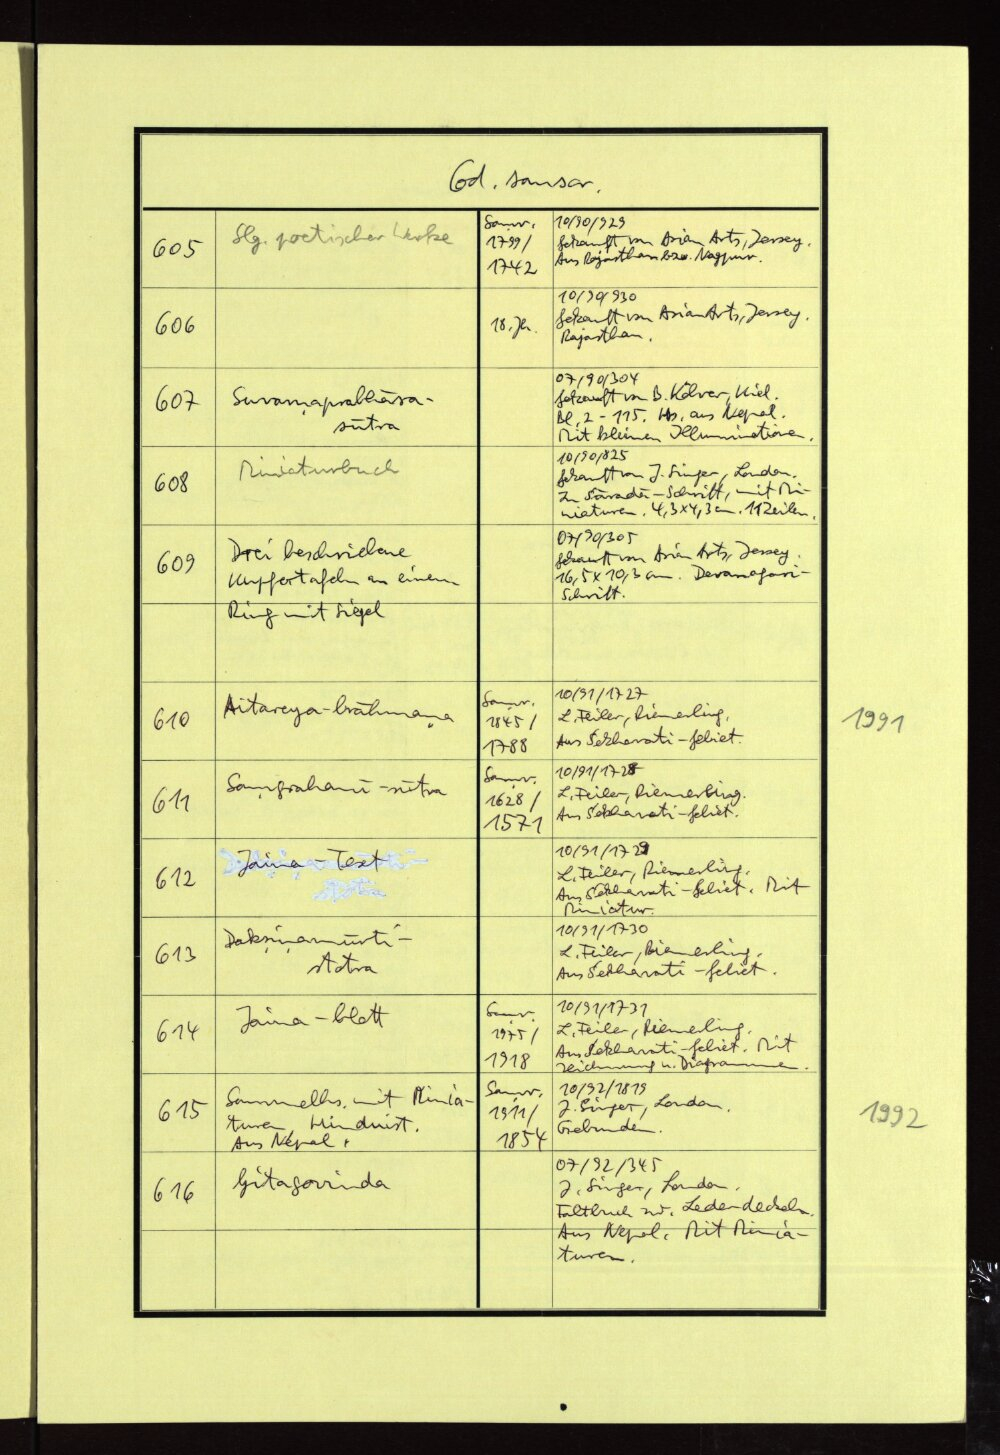 Cod. sanscr.
605
Slg. poetischer Werke
Samv.
1799/
1742
10/90/929
Gekauft von Asian Arts, Jersey.
Aus Rajasthan bzw. Nagpur.
606
18. Jh.
10/90/930
Gekauft von Asian Arts, Jersey.
Rajasthan.
607
Suvarṇaprabhāsa-
sūtra
07/90/304
Gekauft von B. Kölver, Kiel.
Bl. 2-115. Hs. aus Nepal.
Mit kleinen Illuminationen.
608
Miniaturbuch
10/90/825
Gekauft von J. Singer, London.
In Śāradā-Schrift, mit Mi-
niaturen. 4,3x4,3 cm. 11 Zeilen.
609
Drei beschriebene
Kupfertafeln an einem
Ring mit Siegel
07/90/305
Gekauft von Asian Arts, Jersey.
16,5 x 10,3 cm. Devanagari-
Schrift.
610
Aitareya-brāhmaṇa
Saṃv.
1845/
1788
10/91/1727
L. Feiler, Riemerling.
Aus Śekhavati-Gebiet.
1991
611
Saṃgrahaṇī-sūtra
Saṃv.
1628/
1571
10/91/1728
L. Feiler, Riemerling.
Aus Śekhavati-Gebiet.
612
Jaina-Text
10/91/1729
L. Feiler, Riemerling.
Aus Śekhavati-Gebiet. Mit
Miniatur.
613
Dakṣiṇamūrti-
stotra
10/91/1730
L. Feiler, Riemerling.
Aus Śekhavati-Gebiet.
614
Jaina-blatt
Saṃv.
1975/
1918
10/91/1731
L. Feiler, Riemerling.
Aus Śekhavati-Gebiet. Mit
Zeichnung u. Diagrammen.
615
Sammelhs. mit Minia-
turen, Hinduist.
Aus Nepal.
Saṃv.
1911/
1854
10/92/1819
J. Singer, London.
Gebunden.
1992
616
Gītagovinda
07/92/345
J. Singer, London.
Faltbuch zw. Lederdeckeln.
Aus Nepal. Mit Minia-
turen.